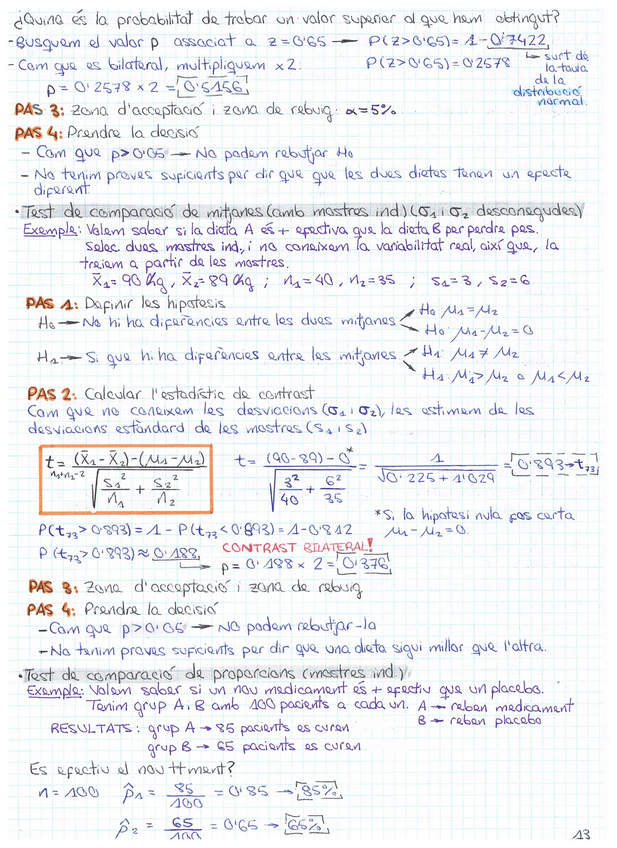 ¿Quina és la probabilitat de trobar un valor superior al que hem obtingut?
- Busquem el valor p associat a z=0'65 → P(z>0'65)= 1-0'7422
- Com que es bilateral, multipliquem x2. P(z>0'65)=0'2578
↳ surt de la taula de la distribució normal.
p= 0'2578 x 2 = 0'5156
PAS 3: Zona d'acceptació i zona de rebuig. α=5%
PAS 4: Prendre la decisió
- Com que p>0'05 → No podem rebutjar H₀
- No tenim proves suficients per dir que que les dues dietes tenen un efecte
diferent
· Test de comparació de mitjanes (amb mostres ind) (σ₁ i σ₂ desconegudes)
Exemple: Volem saber si la dieta A és + efectiva que la dieta B per perdre pes.
Selec. dues mostres ind., i no coneixem la variabilitat real, així que, la
treiem a partir de les mostres.
X̄₁= 90 Kg, X̄₂= 89 Kg ; n₁=40, n₂=35 ; s₁=3, s₂=6
PAS 1: Definir les hipòtesis
H₀ → No hi ha diferències entre les dues mitjanes
H₀ μ₁=μ₂
H₀: μ₁-μ₂=0
H₁ → Si que hi ha diferències entre les mitjanes
H₁: μ₁≠μ₂
H₁ μ₁>μ₂ o μ₁<μ₂
PAS 2: Calcular l'estadístic de contrast
Com que no coneixem les desviacions (σ₁ i σ₂), les estimem de les
desviacions estàndard de les mostres (s₁ i s₂)
t n₁+n₂-2 = (X̄₁-X̄₂)-(μ₁-μ₂) / √(s₁²/n₁ + s₂²/n₂)
t= (90-89)-0* / √(3²/40 + 6²/35) = 1 / √(0'225+1'029) = 0'893→t₇₃
*Si la hipotesi nula fos certa
μ₁-μ₂=0.
P(t₇₃>0'893)= 1-P(t₇₃<0'893)=1-0'812
P(t₇₃>0'893)≈0'188 CONTRAST BILATERAL!
↳ p= 0'188 x 2 = 0'376
PAS 3: Zona d'acceptació i zona de rebuig
PAS 4: Prendre la decisió
- Com que p>0'05 → NO podem rebutjar-la
- No tenim proves suficients per dir que una dieta sigui millor que l'altra.
· Test de comparació de proporcions (mostres ind.)
Exemple: Volem saber si un nou medicament és + efectiu que un placebo.
Tenim grup A i B amb 100 pacients a cada un. A → reben medicament
B → reben placebo
RESULTATS: grup A → 85 pacients es curen
grup B → 65 pacients es curen
Es efectiu el nou ttment?
n=100 p̂₁ = 85/100 = 0'85 → 85%
p̂₂ = 65/100 = 0'65 → 65%
13